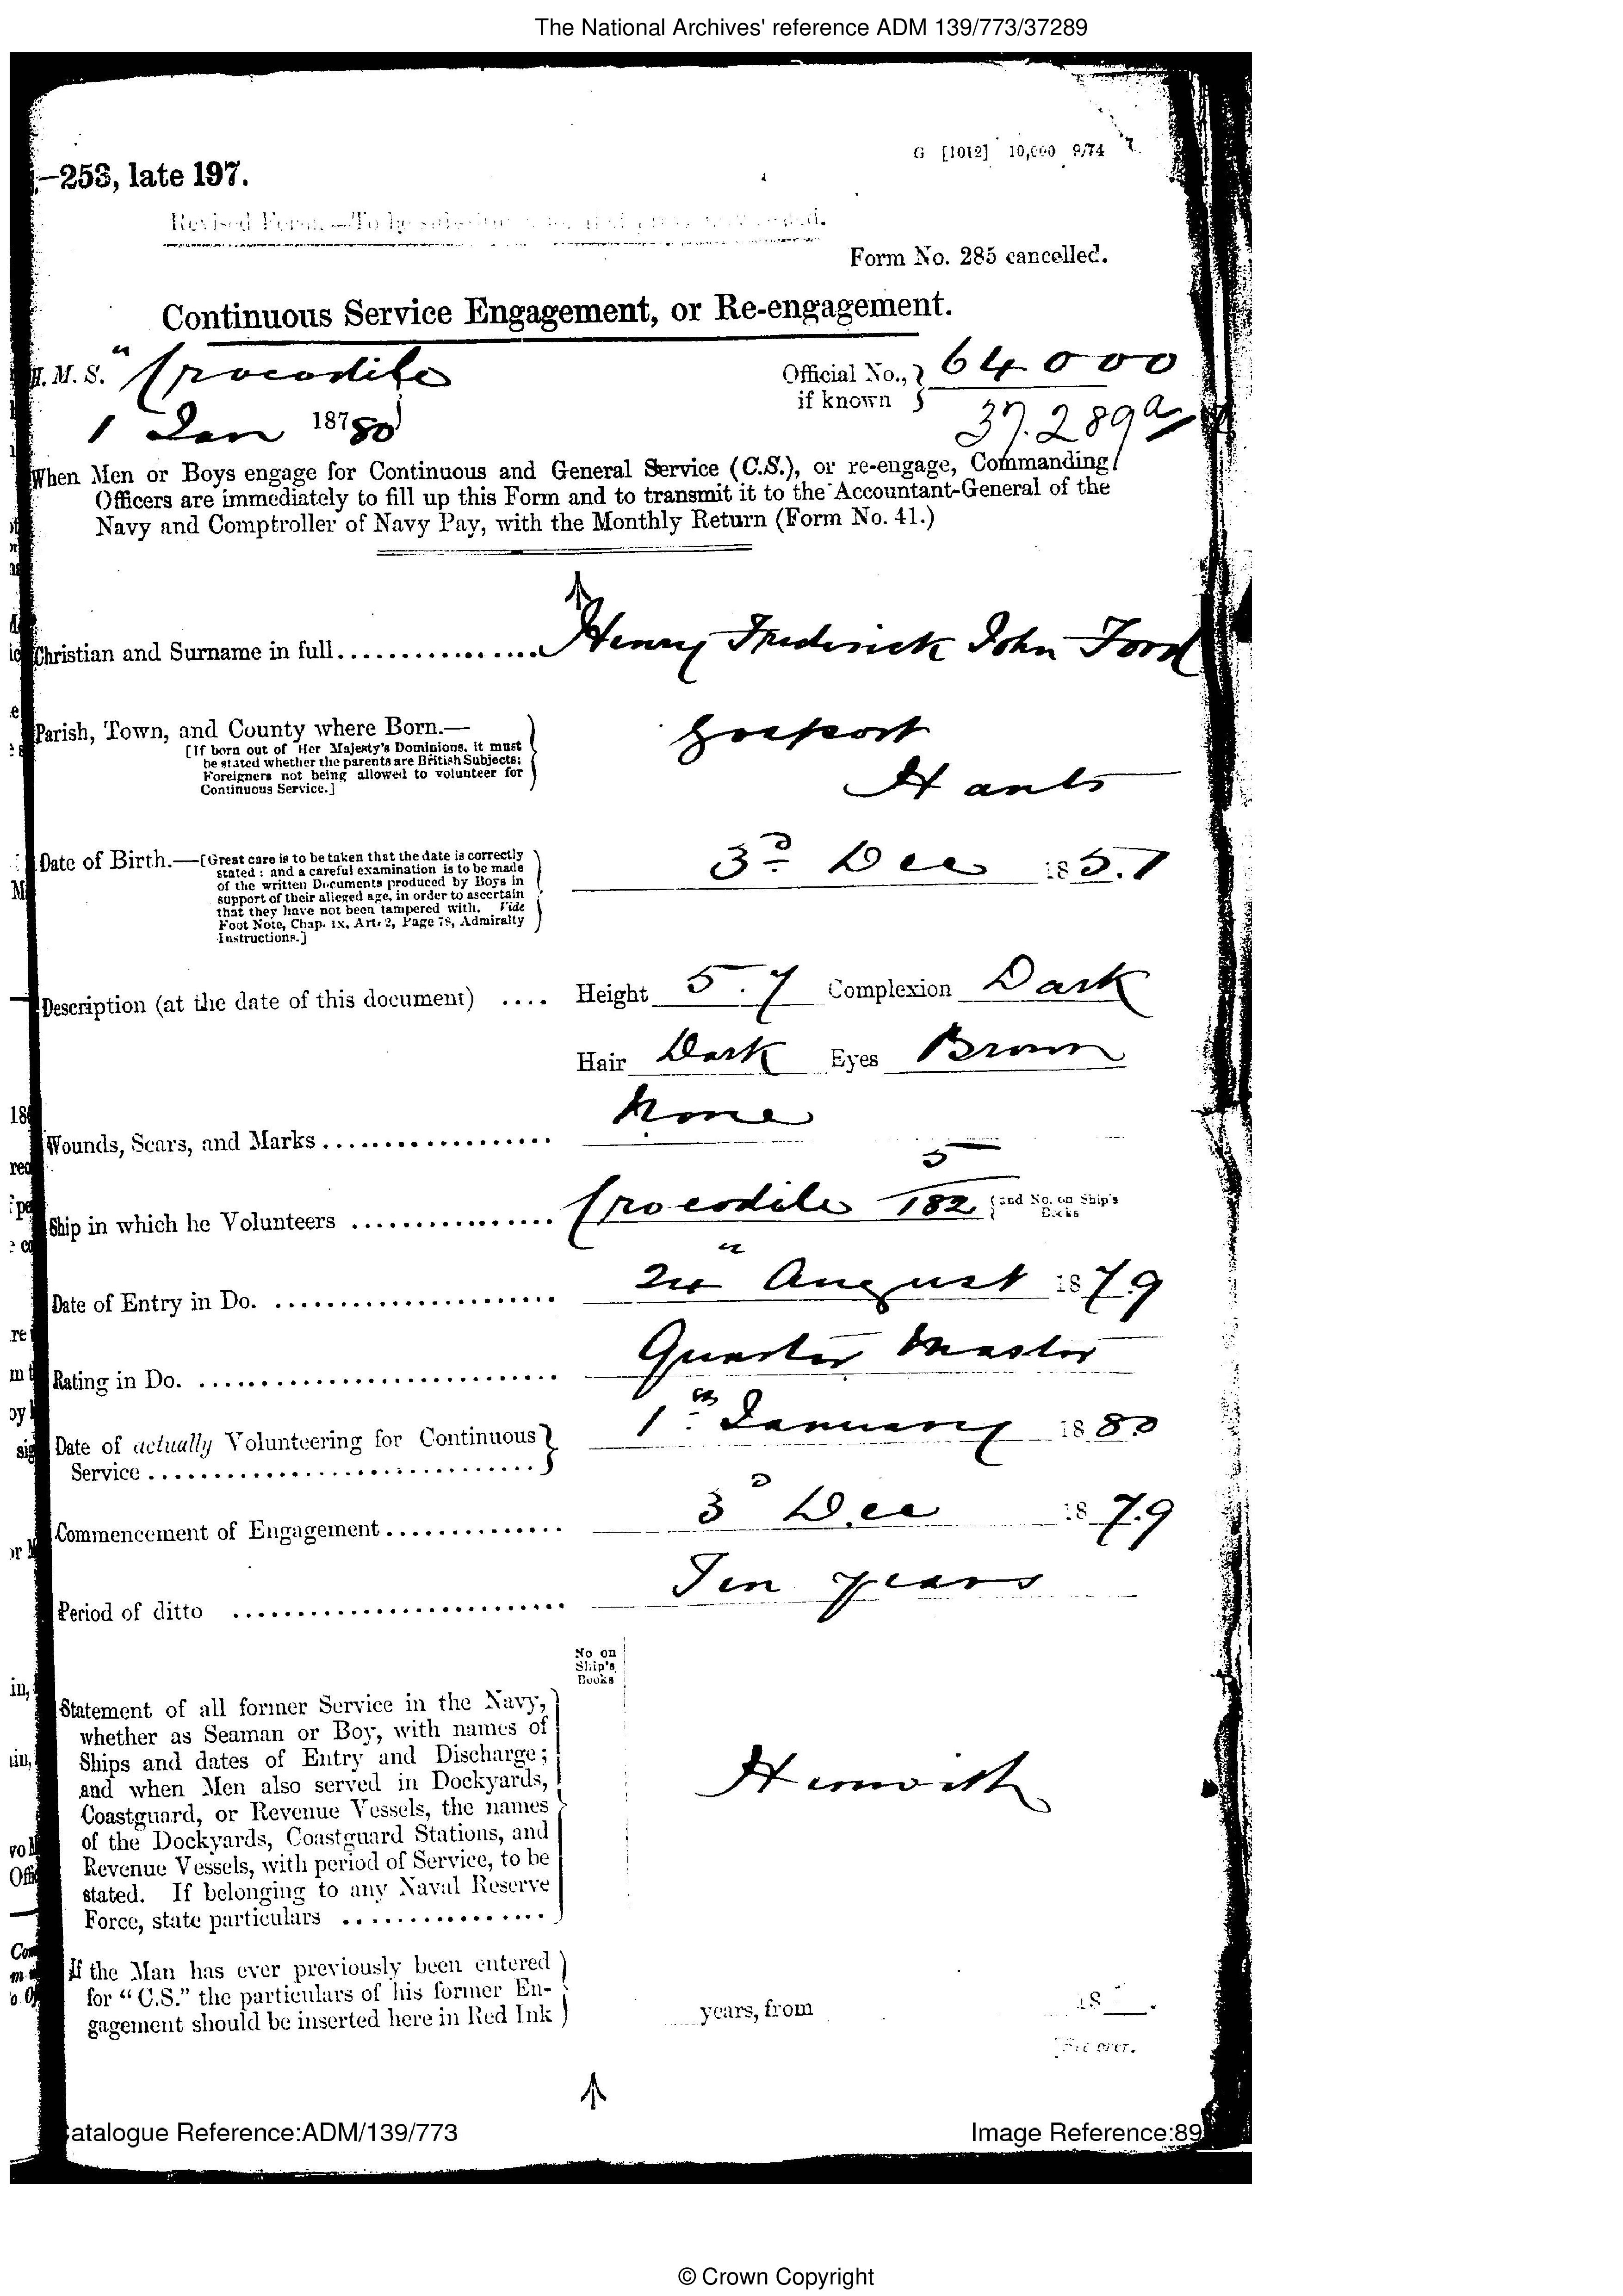 The National Archives' reference ADM 139/773/37289
G [1012] 10,000 9/74
—253, late 197.
Revised Form.—To be
Form No. 285 cancelled.
Continuous Service Engagement, or Re-engagement.
H.M.S. "Crocodile Official No., 64000
if known 37.289a
1 Jan 18780
When Men or Boys engage for Continuous and General Service (C.S.), or re-engage, Commanding
Officers are immediately to fill up this Form and to transmit it to the Accountant-General of the
Navy and Comptroller of Navy Pay, with the Monthly Return (Form No. 41.)
Christian and Surname in full.................. Henry Frederick John Ford
Parish, Town, and County where Born.— Gosport
[If born out of Her Majesty's Dominions, it must
be stated whether the parents are British Subjects;
Foreigners not being allowed to volunteer for
Continuous Service.] Hants
Date of Birth.—[Great care is to be taken that the date is correctly 3d Dec 185.1
stated: and a careful examination is to be made
of the written Documents produced by Boys in
support of their alleged age, in order to ascertain
that they have not been tampered with. Vide
Foot Note, Chap. ix, Art. 2, Page 78, Admiralty
Instructions.]
Description (at the date of this document) .... Height 5.7 Complexion Dark
Hair Dark Eyes Brown
Wounds, Scars, and Marks.................. None
Ship in which he Volunteers ................ Crocodile 5/182 and No. on Ship's Books
Date of Entry in Do. ...................... 24 August 187.9
Rating in Do. ............................ Quarter Master
Date of actually Volunteering for Continuous
Service.............................. 1st January 1880
Commencement of Engagement.............. 3d Dec 187.9
Period of ditto .......................... Ten years
No on
Ship's
Books
Statement of all former Service in the Navy,
whether as Seaman or Boy, with names of
Ships and dates of Entry and Discharge;
and when Men also served in Dockyards,
Coastguard, or Revenue Vessels, the names
of the Dockyards, Coastguard Stations, and
Revenue Vessels, with period of Service, to be
stated. If belonging to any Naval Reserve
Force, state particulars ................
Herewith
If the Man has ever previously been entered
for "C.S." the particulars of his former En-
gagement should be inserted here in Red Ink
years, from 18
[See over.
atalogue Reference:ADM/139/773 Image Reference:89
© Crown Copyright